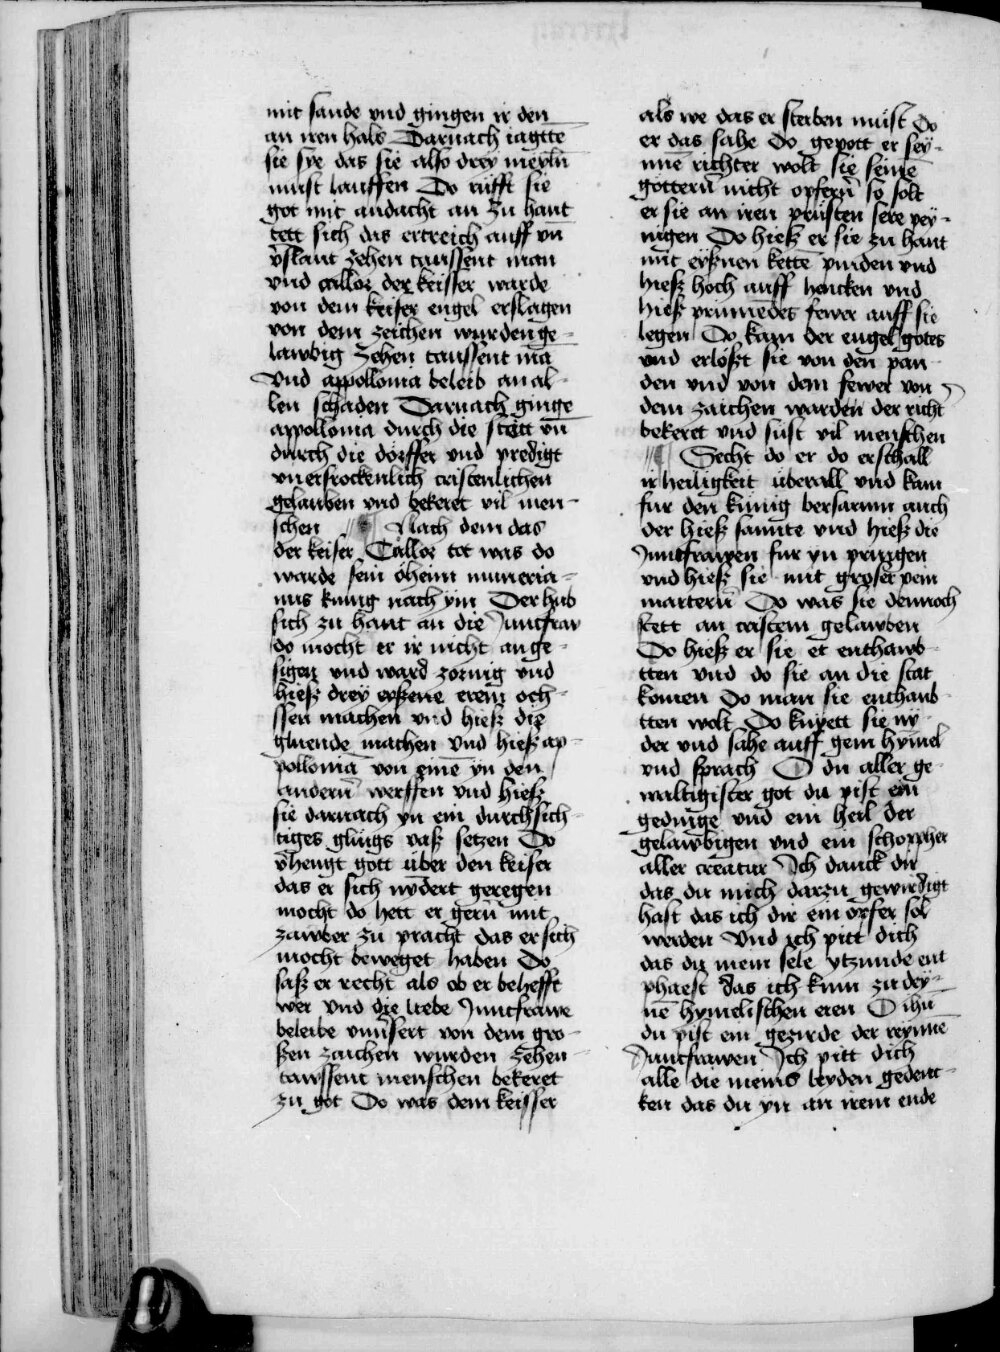 mit sande vnd gingen ir den
an iren hals Darnach iagtte
sie sye das sie also drey meyln̄
must lauffen Do rüfft sie
got mit andacht an zu hant
tett sich das ertreich auff vn̄
v̄slant zehen taussent man
vnd calloz der keisser wurde
von dem keiser engel erslagen
von dem zeichen wurden ge-
lawbig zehen taussent mā
Vnd appollonia beleib an al-
len schaden Darnach ginge
appollonia durch die stett vn̄
durch die dörffer vnd predigt
vnersrockenlich cristenlichen
gelauben vnd bekeret vil men-
schen Nach dem das
der keiser Calloz tot was do
warde sein öheim numeria-
nus kunig nach ym Der hub
sich zu hant an die Junckfraw
do mocht er ir nicht ange-
sigen vnd ward zornig vnd
hiesz drey erszene erein och-
ssen machen vnd hiesz die
gluende machen Vnd hiesz ap-
pollonia von einē yn den
andern̄ werffen vnd hiesz
sie darnach yn ein durchsich-
tiges glüngs vasz setzen Do
v̄hengt gott über den keiser
das er sich nydert geregen
mocht do hett er gern̄ mit
zawber zu pracht das er sich
mocht beweget haben Do
sasz er recht als ob er behefft
wer Vnd die liebe Junckfrawe
beleibe vnuersert von dem gro-
szen zaichen wurden zehen
tawssent menschen bekeret
zu got Do was dem keisser
als we das er sterben must Do
er das sahe Do gepott er sey-
nnē richter wolt sie seinē
göttern̄ nicht opfern̄ so solt
er sie an iren prüsten sere pey-
nigen Do hiesz er sie zu hant
mit eysznen kettē pinden vnd
hiesz hoch auff hencken vnd
hiesz prinnēdes fewer auff sie
legen Do kam der engel gotes
vnd erlöszt sie von den pan-
den vnd von dem fewer von
dem zaichen warden der richt
bekeret vnd süst vil menschen
Secht do er do erschall
ir heiligkeit überall vnd kam
für den künig bersarum auch
der hiesz sannte vnd hiesz die
Junckfrawen für yn pringen
vnd hiesz sie mit groser pein
martern̄ Do was sie dennoch
stett an cristem gelawben
Do hiesz er sie et enthaub-
tten vnd do sie an die stat
komen Do man sie enthaub
tten wolt Do knyett sie ny-
der vnd sahe auff gem hymel
vnd sprach O du aller ge-
waltigister got du pist ein
gedinge vnd ein heil der
gelawbigen vnd ein schoppher
aller creatur Ich danck dir
das du mich darzu gewirdigt
hast das ich dir ein opfer sol
werden Vnd ich pitt dich
das du mein sele ytzunde ent
phaest das ich kum zu dey-
nē hymelischen eren O ihū
du pist ein gezirde der reynnē
Junckfrawen Ich pitt dich
alle die meins leyden geden-
ken das du yn an irem ende